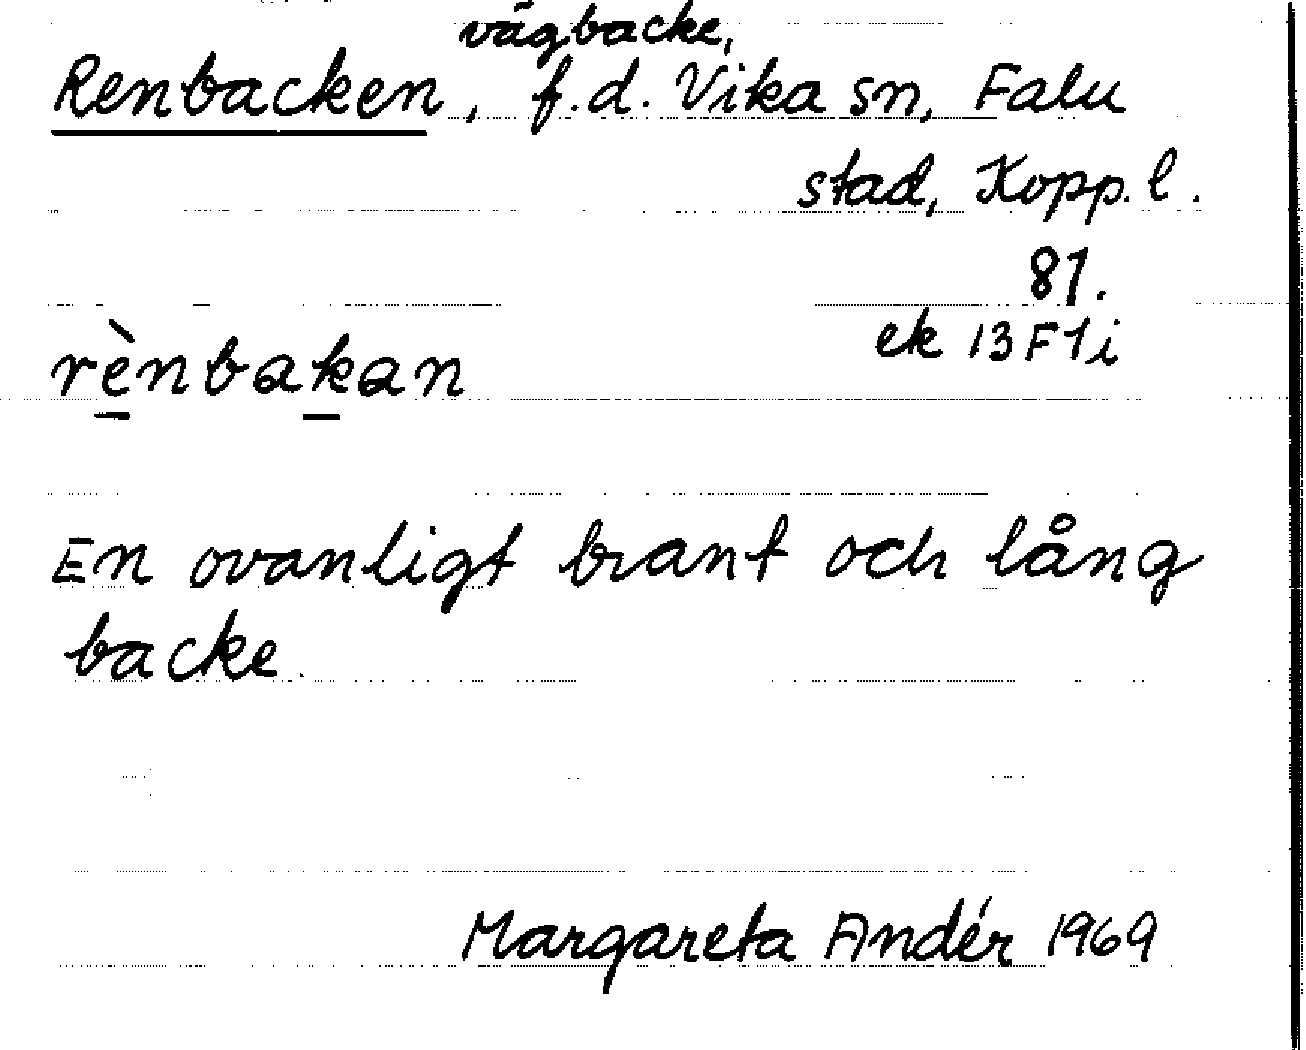 vägbacke,
Renbacken, f.d. Vika sn, Falu
stad, Kopp. l.
81.
ek 13F1i
rènbakan
En ovanligt brant och lång
backe.
Margareta Andér 1969